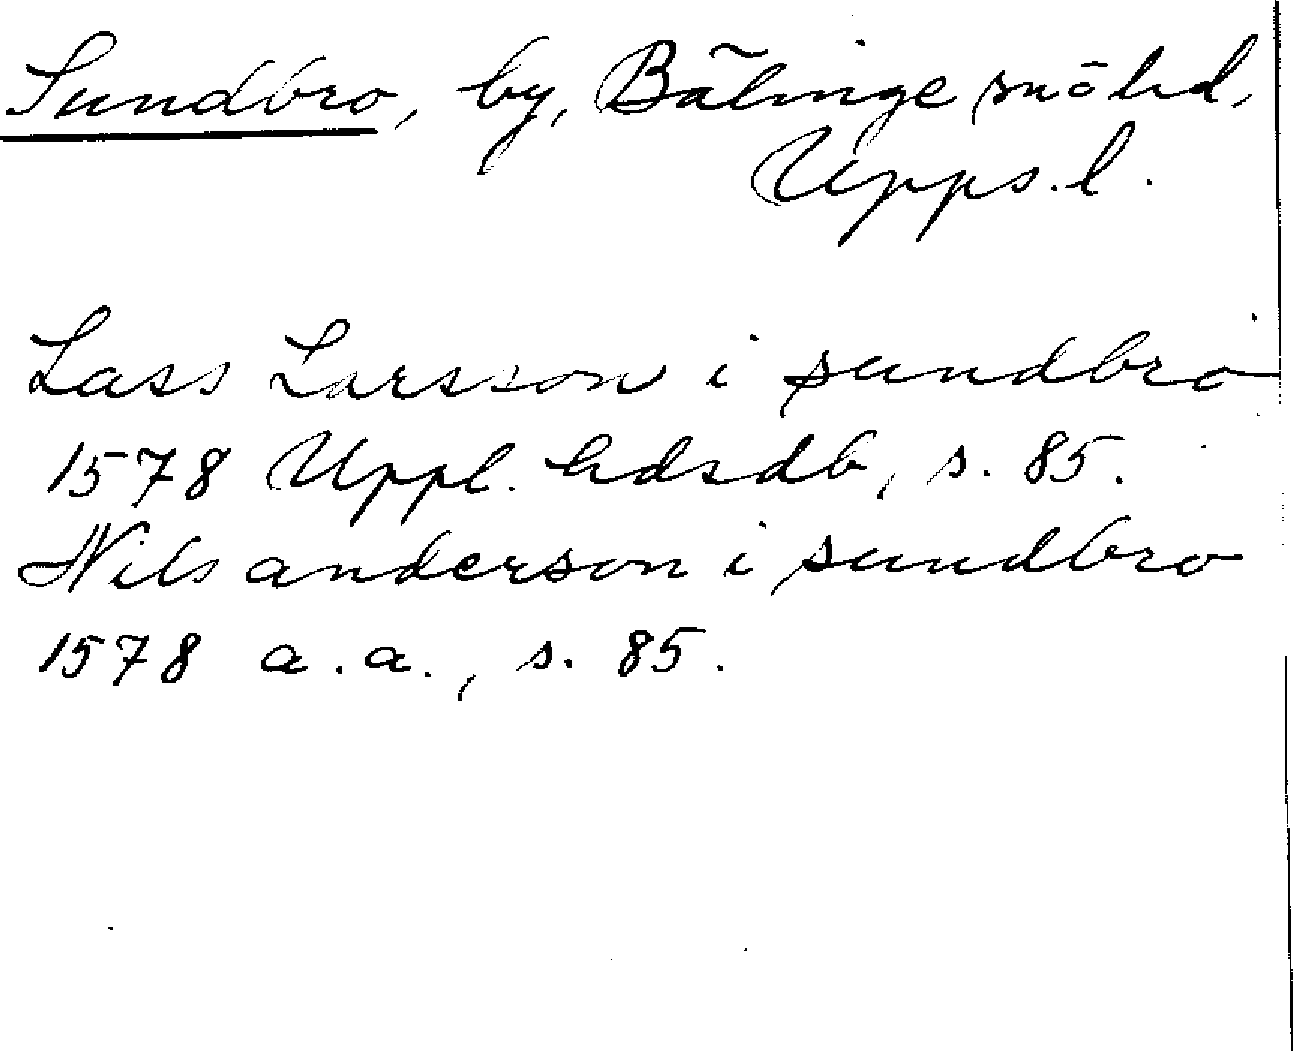 Sundbro, by, Bälinge sn o hd,
Upps. l.
Lass Larsson i sundbro
1578 Uppl. hdsdb, s. 85.
Nils anderson i sundbro
1578 a.a., s. 85.